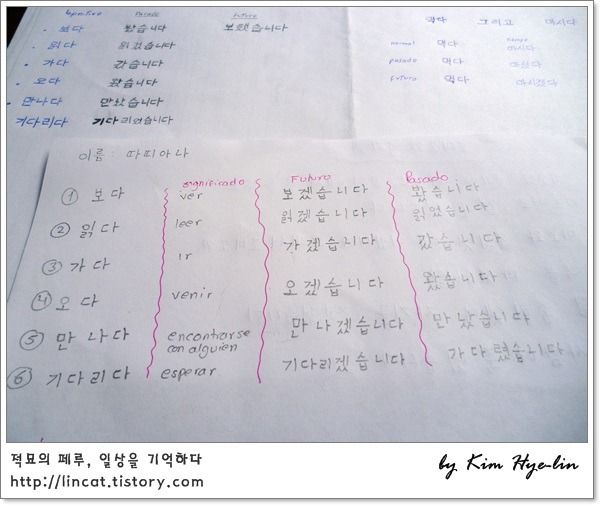 Pasado Futuro
보다 봤습니다 보겠습니다
읽다 읽었습니다
가다 갔습니다
오다 왔습니다
만나다 만났습니다
기다리다 기다리었습니다
그리고 마시다
normal 먹다 마시다
pasado 먹다
futuro 먹다 마시겠다
이름: 따띠아나
significado Futuro Pasado
① 보다 ver 보겠습니다 봤습니다
② 읽다 leer 읽겠습니다 읽었습니다
③ 가다 ir 가겠습니다 갔습니다
④ 오다 venir 오겠습니다 왔습니다
⑤ 만나다 encontrarse con alguien 만나겠습니다 만났습니다
⑥ 기다리다 esperar 기다리겠습니다 가다렸습니다
적묘의 페루, 일상을 기억하다
http://lincat.tistory.com
by Kim Hye-lin